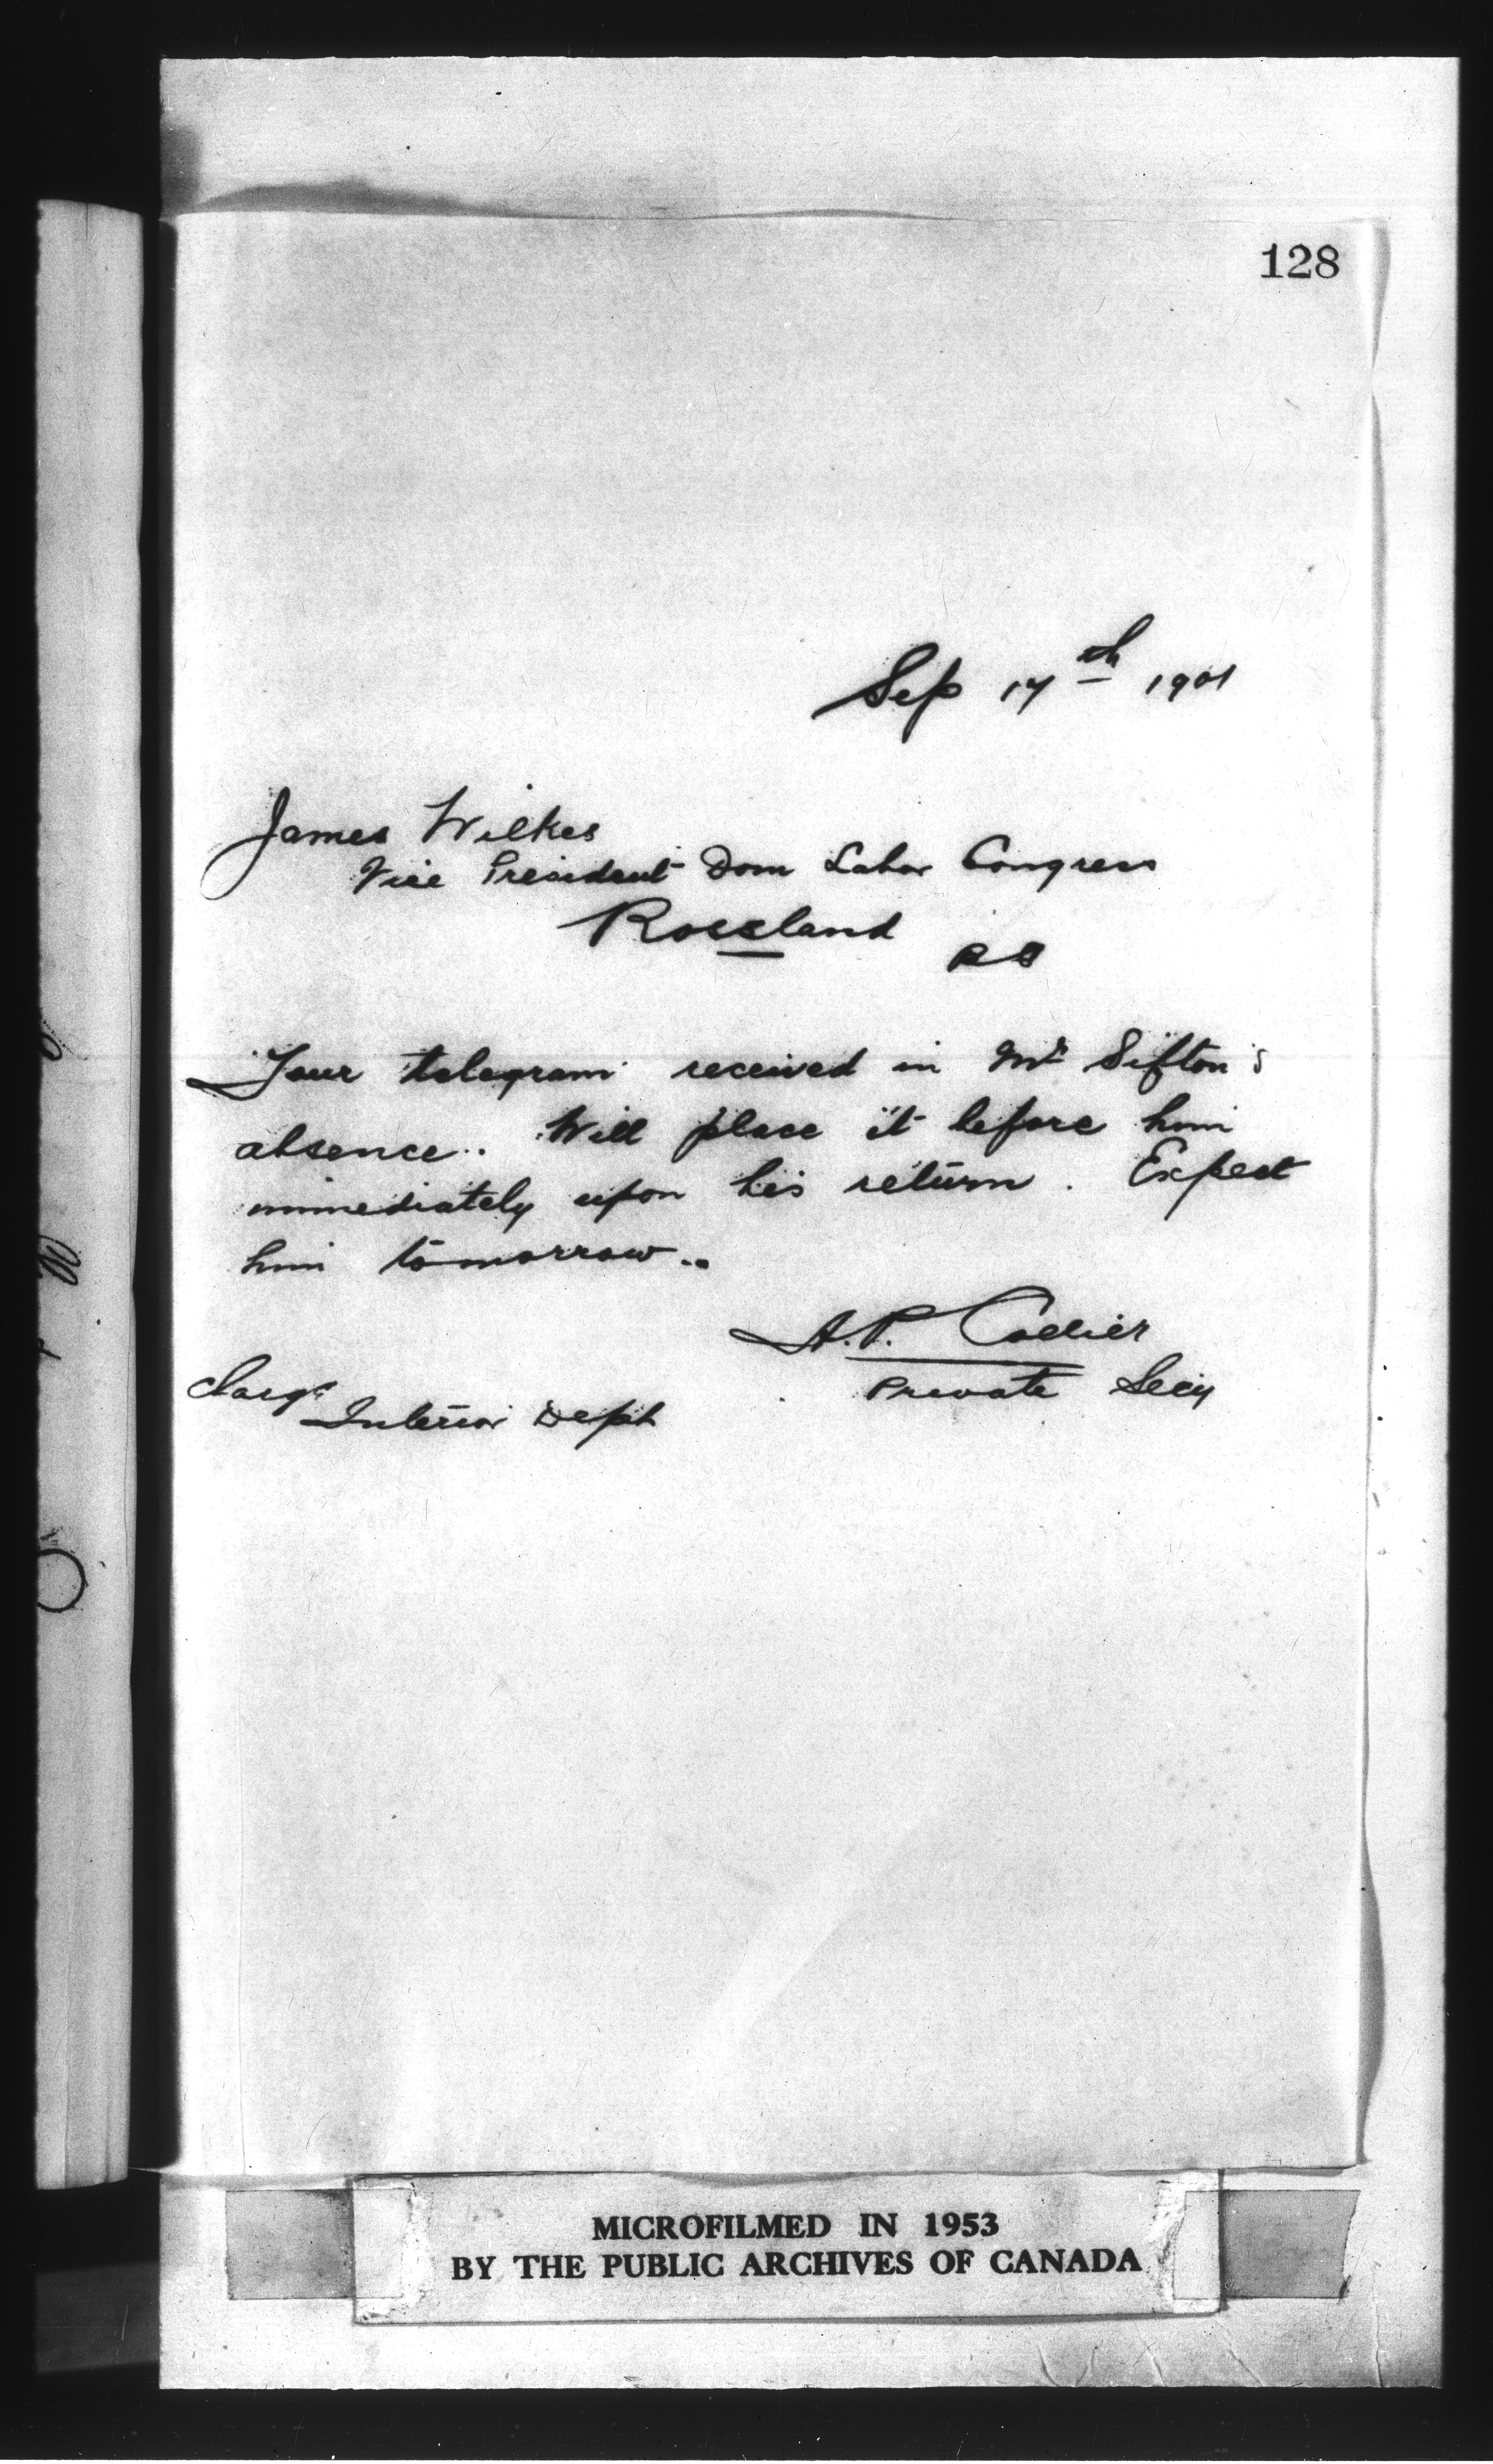 128
Sep 17th 1901
James Wilkes
Vice President Dom Labor Congress
Rossland BC
Your telegram received in Mr Sifton's
absence. Will place it before him
immediately upon his return. Expect
him tomorrow..
A.P. Collier
Private Secy
Charge
Interior Dept
MICROFILMED IN 1953
BY THE PUBLIC ARCHIVES OF CANADA